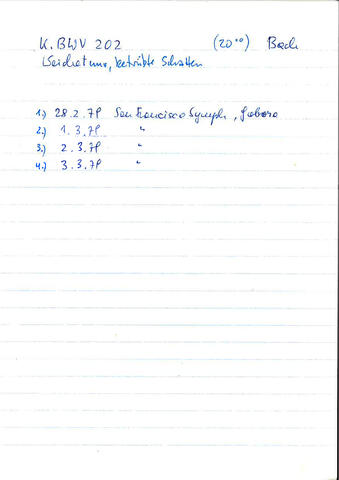 K. BWV 202 (20°°) Bach
Weichet nur, betrübte Schatten
1.) 28.2.78 San Francisco Symph,
2.) 1.3.78 "
3.) 2.3.78 "
4.) 3.3.78 "